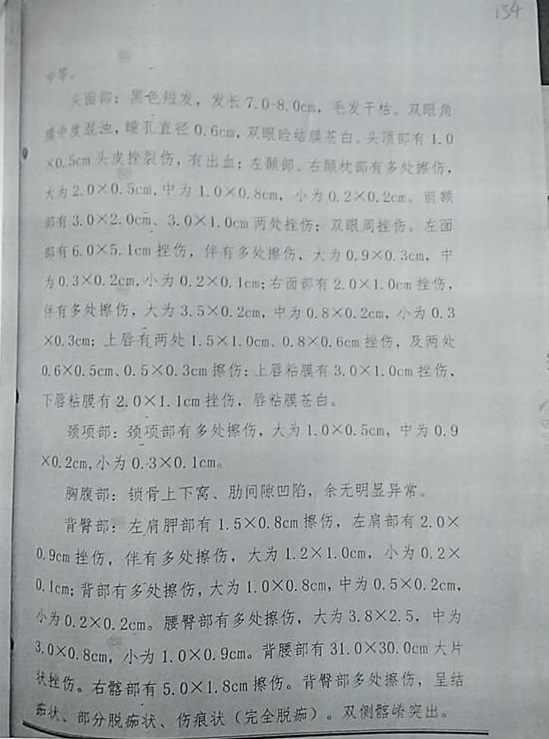 134
中等。
头面部：黑色短发，发长7.0-8.0cm，毛发干枯。双眼角
膜中度混浊，瞳孔直径0.6cm，双眼睑结膜苍白。头顶部有1.0
×0.5cm头皮挫裂伤，有出血；左颞部、右颞枕部有多处擦伤，
大为2.0×0.5cm,中为1.0×0.8cm，小为0.2×0.2cm。前额
部有3.0×2.0cm、3.0×1.0cm两处挫伤；双眼周挫伤。左面
部有6.0×5.1cm挫伤，伴有多处擦伤，大为0.9×0.3cm，中
为0.3×0.2cm,小为0.2×0.1cm；右面部有2.0×1.0cm挫伤，
伴有多处擦伤，大为3.5×0.2cm，中为0.8×0.2cm，小为0.3
×0.3cm；上唇有两处1.5×1.0cm、0.8×0.6cm挫伤，及两处
0.6×0.5cm、0.5×0.3cm擦伤；上唇粘膜有3.0×1.0cm挫伤，
下唇粘膜有2.0×1.1cm挫伤，唇粘膜苍白。
颈项部：颈项部有多处擦伤，大为1.0×0.5cm，中为0.9
×0.2cm,小为0.3×0.1cm。
胸腹部：锁骨上下窝、肋间隙凹陷，余无明显异常。
背臀部：左肩胛部有1.5×0.8cm擦伤，左肩部有2.0×
0.9cm挫伤，伴有多处擦伤，大为1.2×1.0cm，小为0.2×
0.1cm；背部有多处擦伤，大为1.0×0.8cm，中为0.5×0.2cm，
小为0.2×0.2cm。腰臀部有多处擦伤，大为3.8×2.5，中为
3.0×0.8cm，小为1.0×0.9cm。背腰部有31.0×30.0cm大片
状挫伤。右髂部有5.0×1.8cm擦伤。背臀部多处擦伤，呈结
痂状、部分脱痂状、伤痕状（完全脱痂）。双侧髂嵴突出。